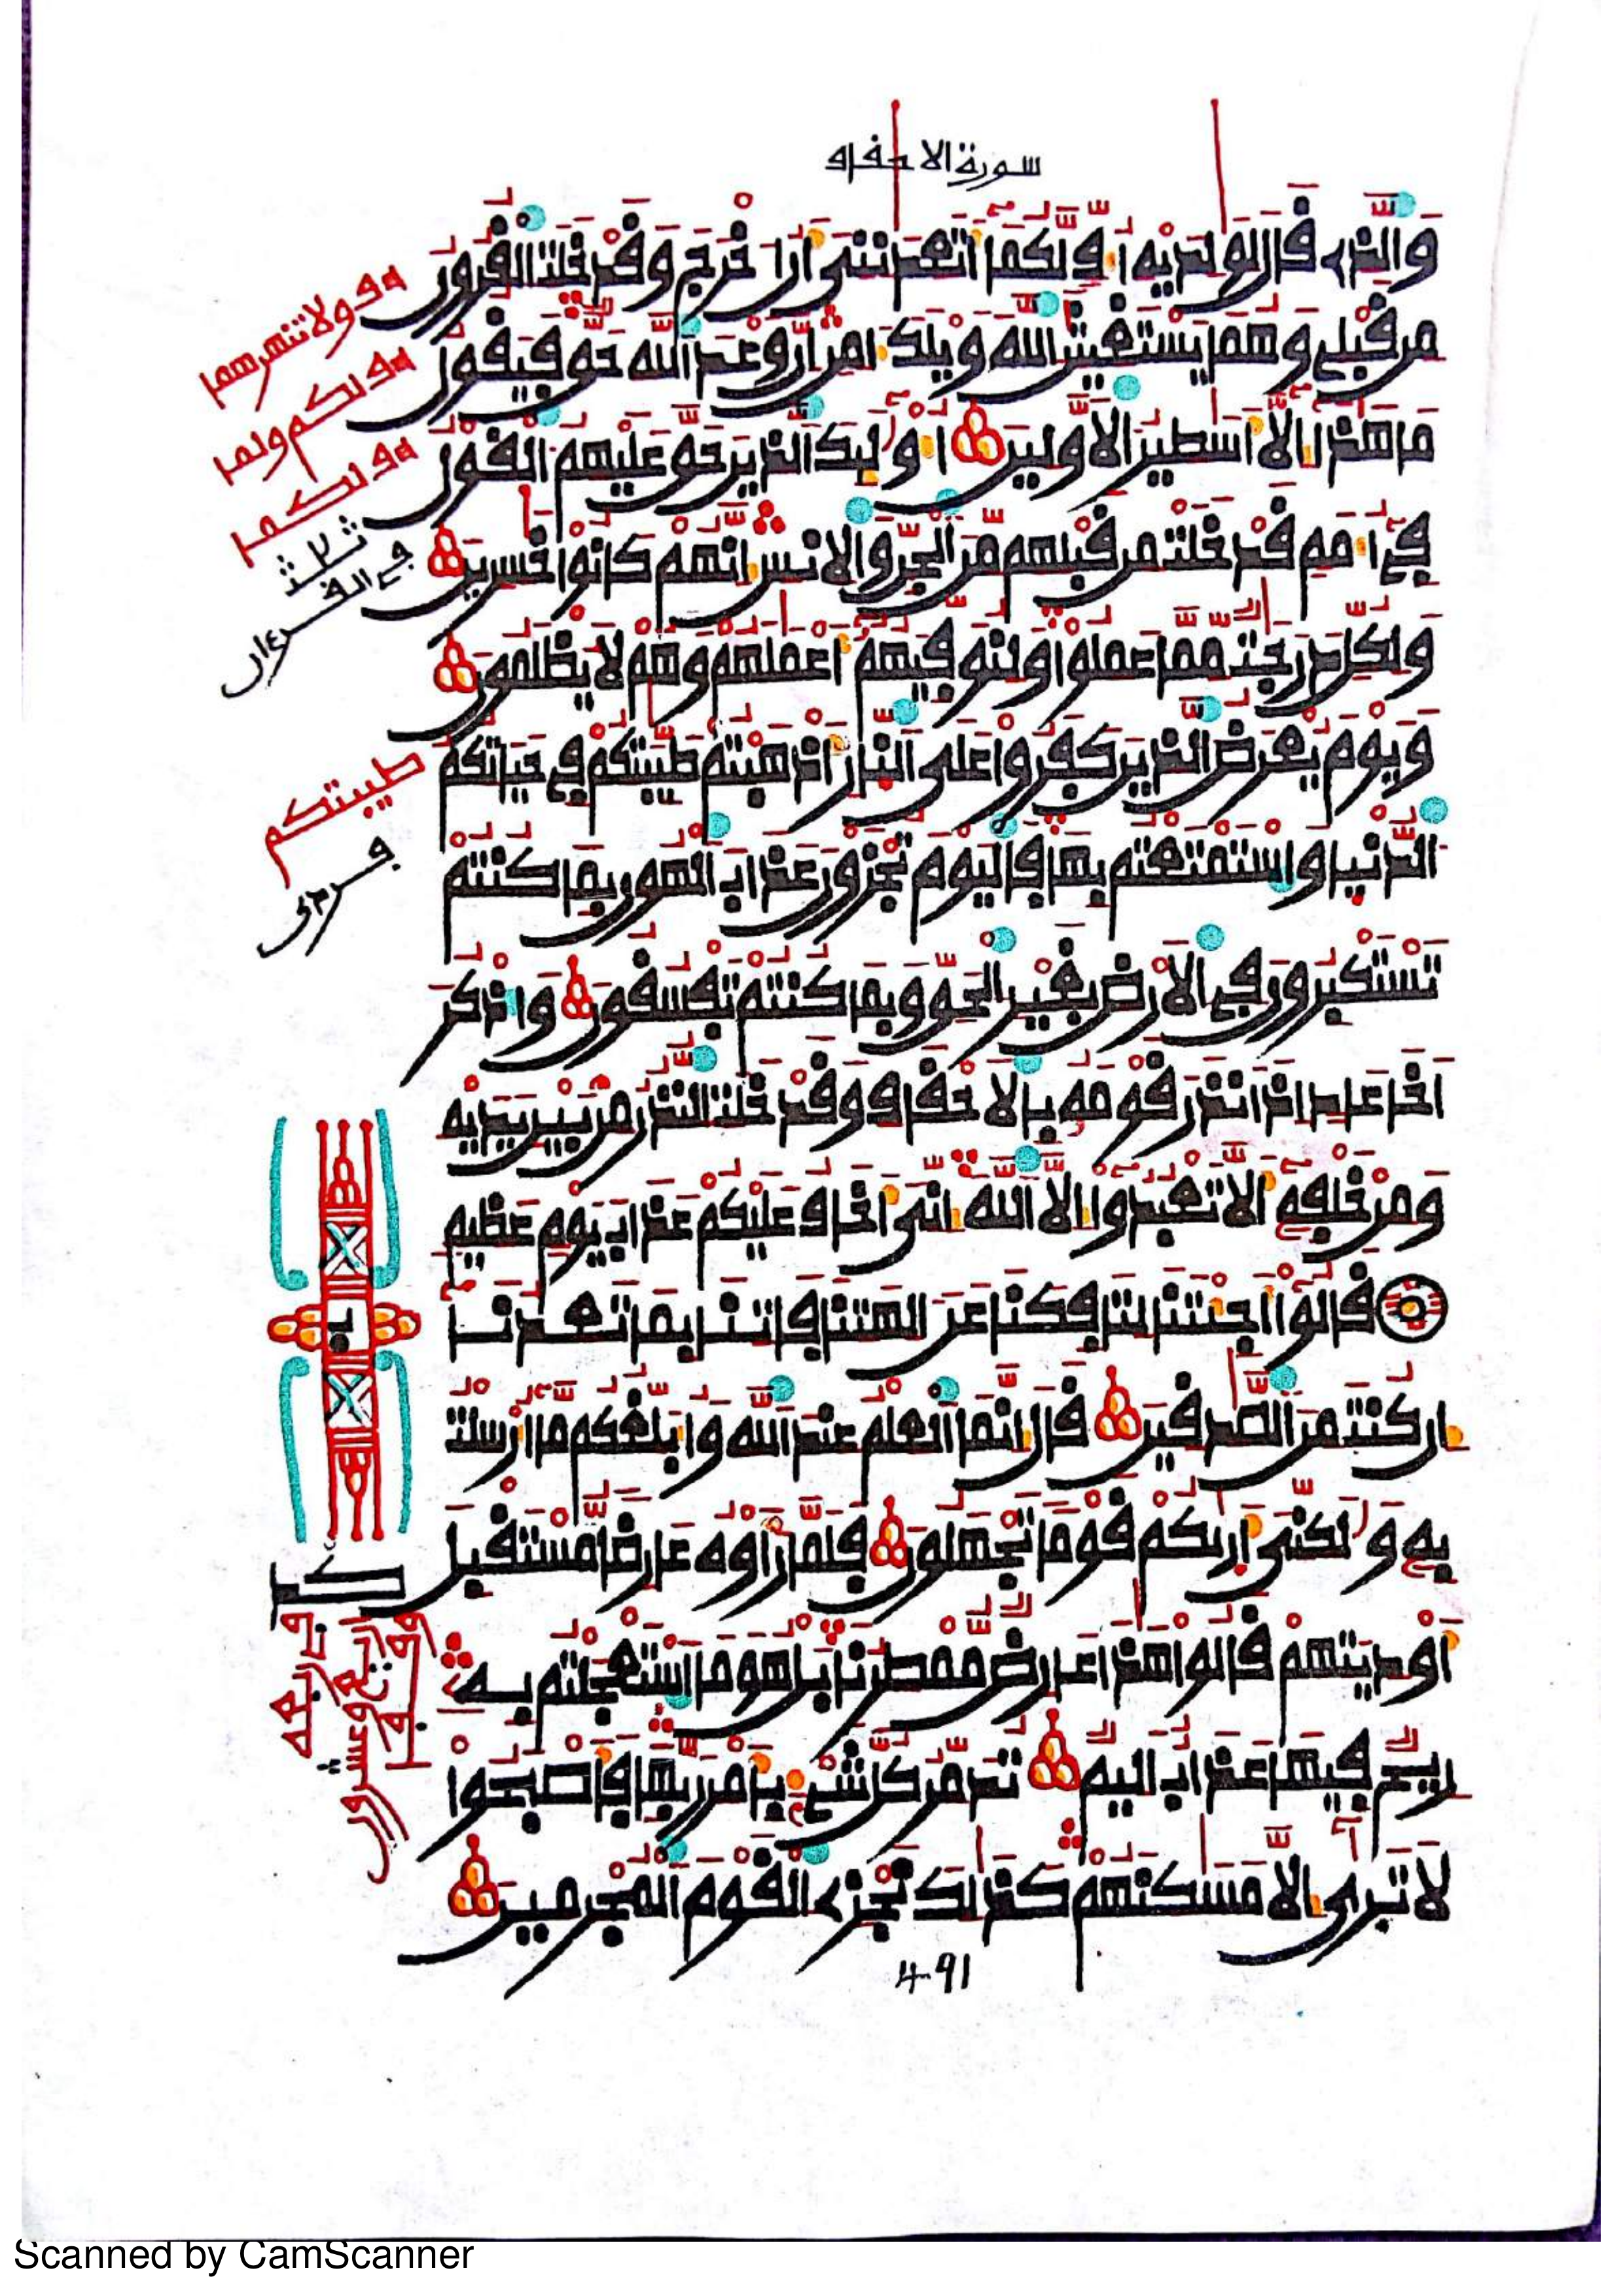 سورة الاحقاف
والذے قال لولديه اف لكما اتعدننى ان اخرج وقد خلت القرون
من قبلے وهما يستغيثن الله ويلك امن ان وعد الله حق فيقول
ما هذا الا اسطير الاولين اوليك الذين حق عليهم القول
فے امم قد خلت من قبلهم من الجن والانس انهم كانوا خسرين
ولكل درجت مما عملوا ولنوفيهم اعملهم وهم لا يظلمون
ويوم يعرض الذين كفروا على النار اذهبتم طيبتكم فے حياتكم
الدنيا واستمتعتم بها فاليوم تجزون عذاب الهون بما كنتم
تستكبرون فے الارض بغير الحق وبما كنتم تفسقون واذكر
اخا عاد اذ انذر قومه بالاحقاف وقد خلت النذر من بين يديه
ومن خلفه الا تعبدوا الا الله انى اخاف عليكم عذاب يوم عظيم
قالوا اجئتنا لتافكنا عن الهتنا فاتنا بما تعدنا
ان كنت من الصدقين قال انما العلم عند الله وابلغكم ما ارسلت
به ولكنى اريكم قوما تجهلون فلما راوه عارضا مستقبل
اوديتهم قالوا هذا عارض ممطرنا بل هو ما استعجلتم به
ريح فيها عذاب اليم تدمر كل شےء بامر ربها فاصبحوا
لا ترى الا مسكنهم كذلك نجزے القوم المجرمين
اف ولا تنهرهما
اف لكم ولما
اف لكما
ثلاث
فے القرءان
طيبتكم
فردى
491
Scanned by CamScanner